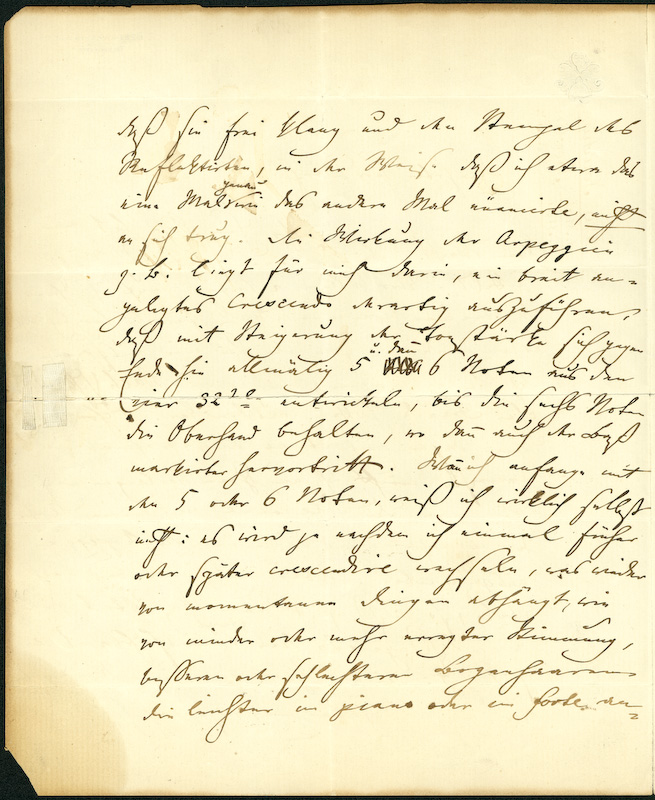 daß sie frei klang und den Stempel des
Reflektirten, in der Weise daß ich etwa das
eine Mal wie genau das andere Mal nüancirte, nicht
an sich trug. Die Wirkung der Arpeggien
z. B. liegt für mich darin, ein breit an=
gelegtes Crescendo derartig auszuführen,
daß mit Steigerung der Tonstärke sich gegen
Ende hin allmälig 5 u. dann 6 Noten aus den
vier 32tel entwickeln, bis die sechs Noten
die Oberhand behalten, wo dann auch der Baß
markirter hervortritt. Wann ich anfange mit
den 5 oder 6 Noten, weiß ich wirklich selbst
nicht: es wird je nachdem ich einmal früher
oder später crescendire wechseln, was wieder
von momentanen Dingen abhängt, wie
von minder oder mehr erregter Stimmung,
besseren oder schlechteren Bogenhaaren
die leichter im piano oder im forte an=